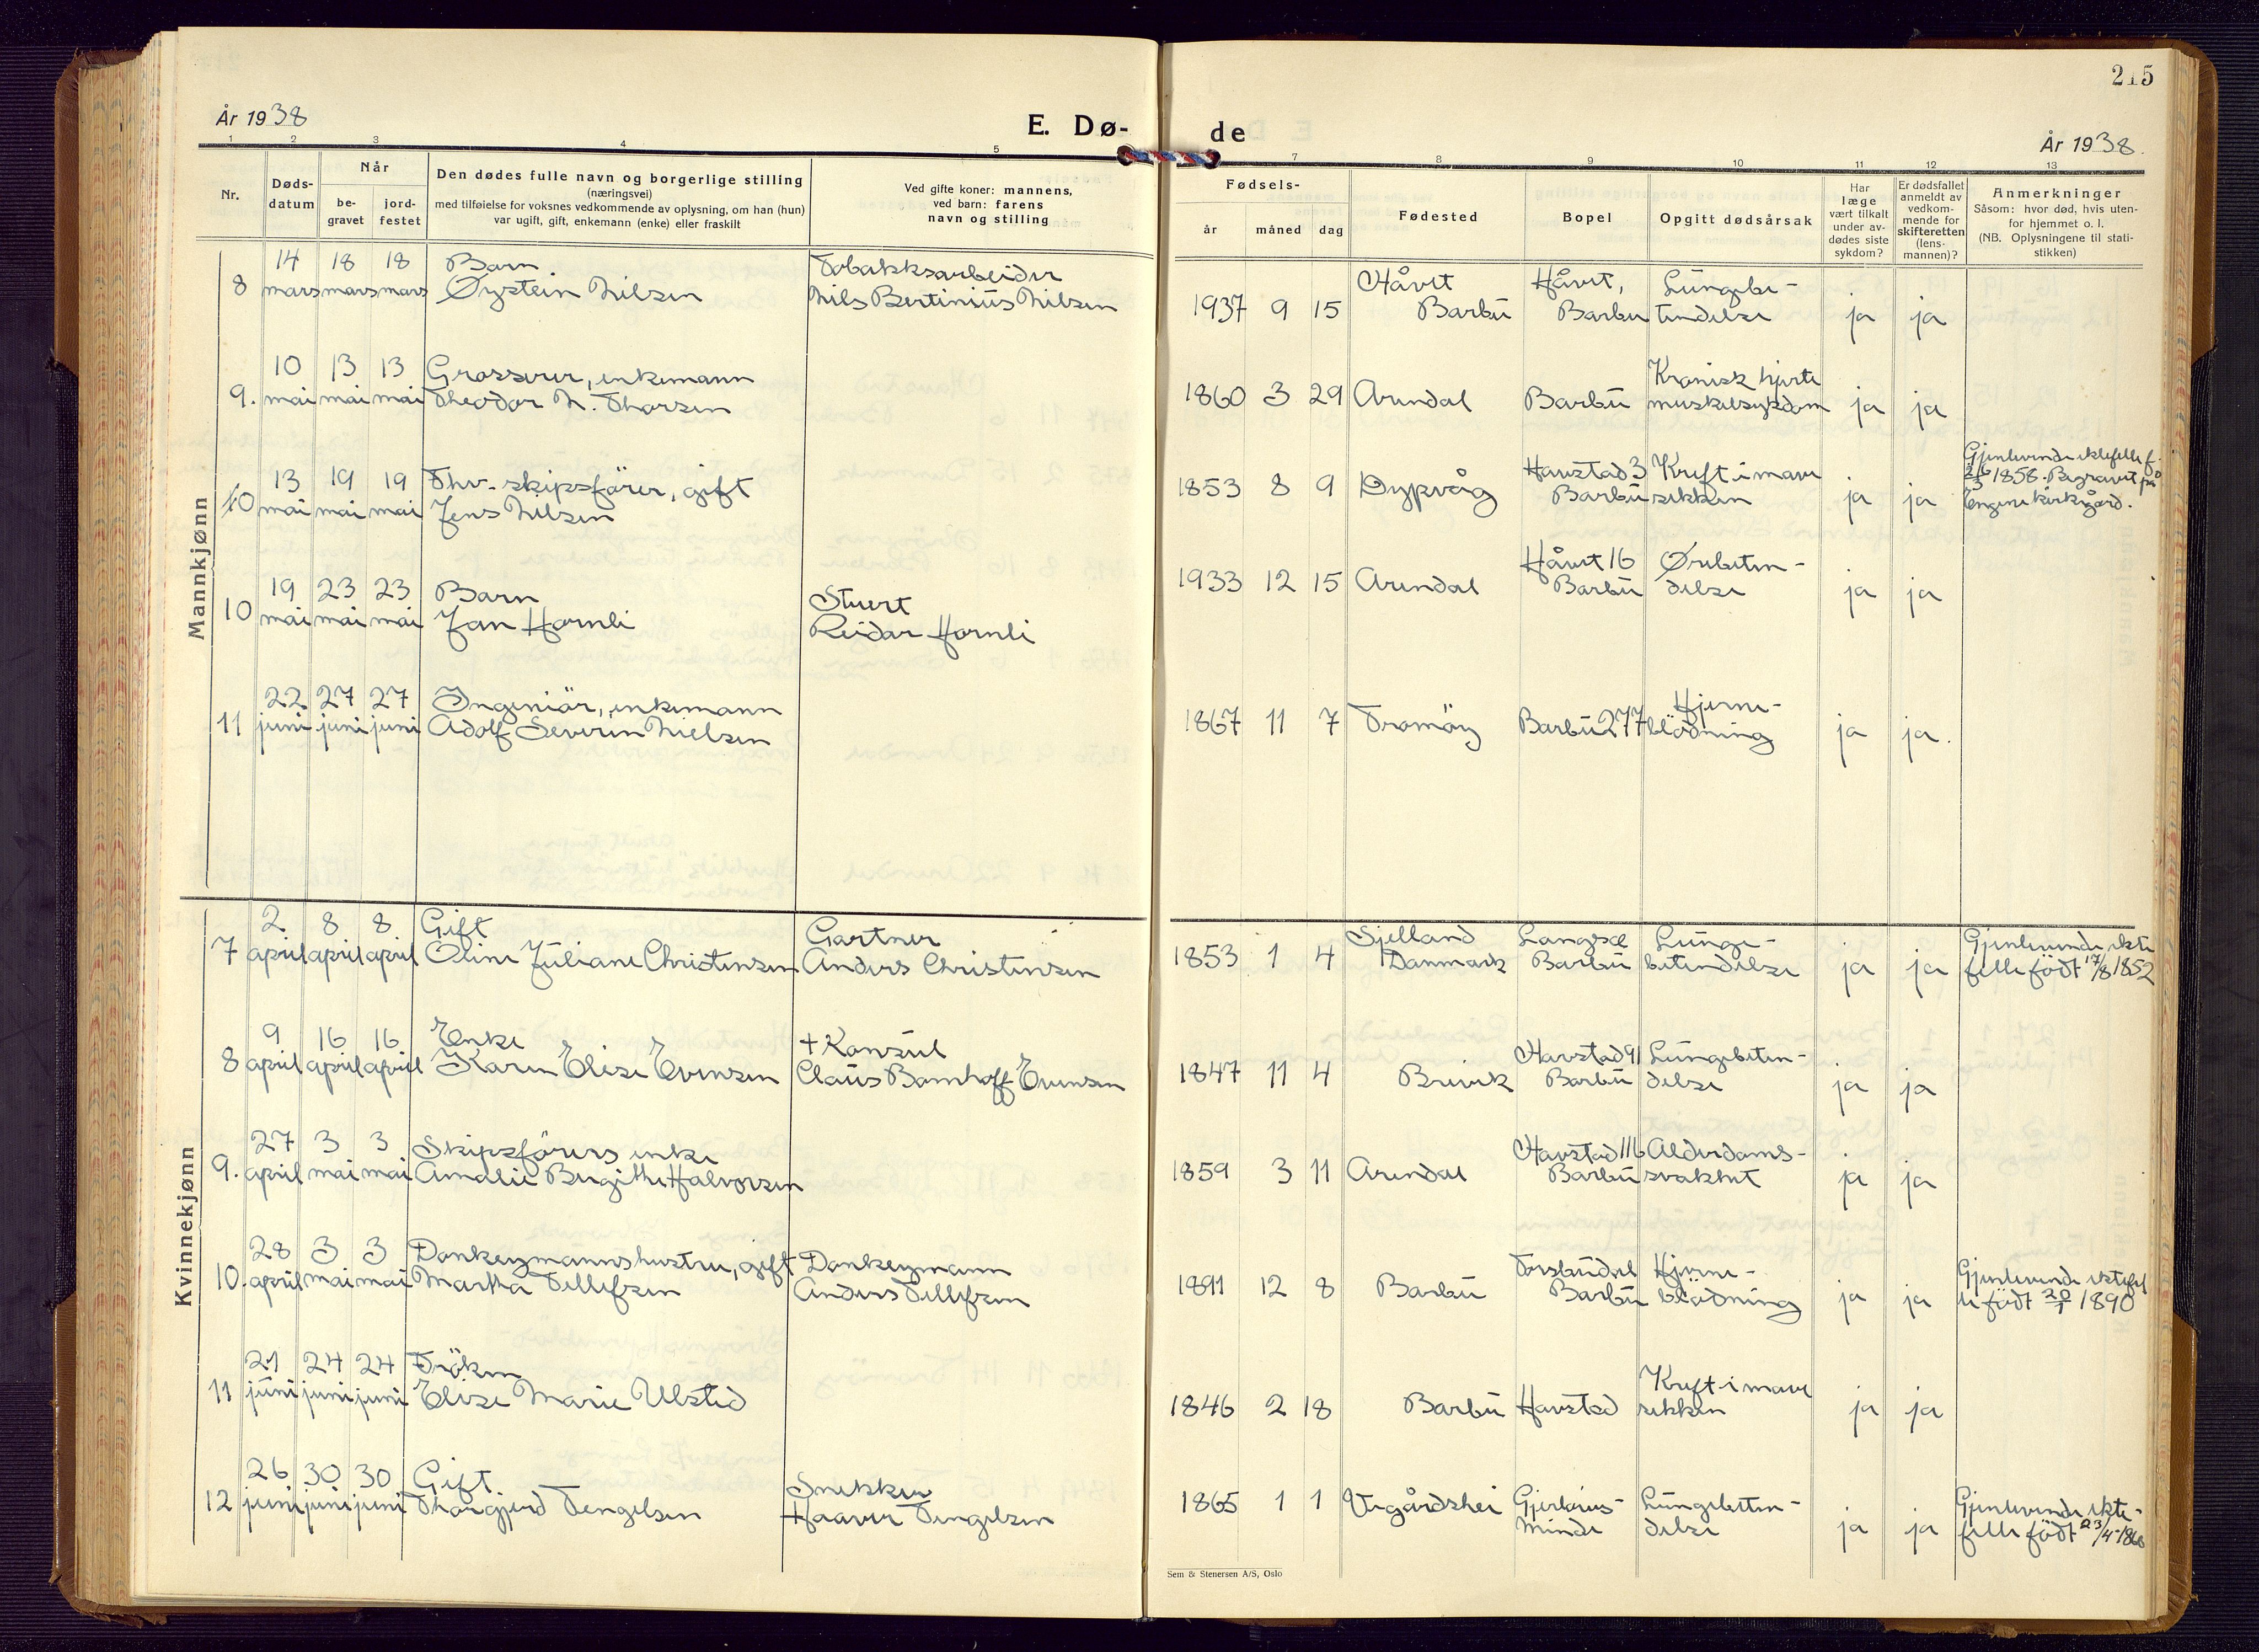 215
År 1938
E. Dø-
de
År 1938.
1 2 3 4 5 7 8 9 10 11 12 13
Nr.
Døds-
datum
Når
be-
gravet
jord-
festet
Den dødes fulle navn og borgerlige stilling
(næringsvei)
med tilføielse for voksnes vedkommende av oplysning, om han (hun)
var ugift, gift, enkemann (enke) eller fraskilt
Ved gifte koner: mannens,
ved barn: farens
navn og stilling
Fødsels-
år måned dag
Fødested
Bopel
Opgitt dødsårsak
Har
læge
vært tilkalt
under av-
dødes siste
sykdom?
Er dødsfallet
anmeldt av
vedkom-
mende for
skifteretten
(lens-
mannen)?
Anmerkninger
Såsom: hvor død, hvis uten-
for hjemmet o. l.
(NB. Oplysningene til stati-
stikken)
Mannkjønn
14 18 18 Barn Tobakksarbeider Håvet Håvet, Lungebe-
8 mars mars mars Øystein Nilsen Nils Bertinius Nilsen 1937 9 15 Barbu Barbu tendelse ja ja
10 13 13 Grosserer, enkemann Kronisk hjerte
9. mai mai mai Theodor N. Thorsen 1860 3 29 Arendal Barbu muskelsykdom ja ja
13 19 19 Fhv. skipsfører, gift Havstad 3 Kreft i mave Gjenlevende ektefelle f.
10 mai mai mai Jens Nilsen 1853 8 9 Dypvåg Barbu sekken ja ja 1858. Begravet på
Engene kirkegård.
19 23 23 Barn Stuert Håvet 16 Ørebeten-
10 mai mai mai Jan Hornli Reidar Hornli 1933 12 15 Arendal Barbu delse ja ja
22 27 27 Ingeniör, enkemann Hjerne-
11 juni juni juni Adolf Severin Nielsen 1867 11 7 Tromöy Barbu 277 blödning ja ja.
Kvinnekjønn
2 8 8 Gift Gartner Sjelland Langsæ Lunge- Gjenlevende ekte
7 april april april Oline Juliane Christensen Anders Christensen 1853 1 4 Danmark Barbu betendelse ja ja felle födt 17/8 1852
9 16 16 Enke + Konsul Havstad 91 Lungebeten-
8 april april april Karen Elise Evensen Claus Bomhoff Evensen 1847 11 4 Brevik Barbu delse ja ja
27 3 3 Skipsförers enke Havstad 116 Alderdoms-
9. april mai mai Amalie Birgithe Halvorsen 1859 3 11 Arendal Barbu svakhet ja ja
28 3 3 Donkeymannshustru, gift Donkeymann Torsbudal Hjerne- Gjenlevende ektefel
10. april mai mai Martha Tellefsen Anders Tellefsen 1891 12 8 Barbu Barbu blödning ja ja le födt 20/1 1890
21 24 24 Fröken Kreft i mave
11 juni juni juni Elise Marie Ulsted 1846 2 18 Barbu Havstad sekken ja ja
26 30 30 Gift Snekker Gjerløws- Lungebeten- Gjenlevende ekte-
12 juni juni juni Thorgjerd Tengelsen Haaver Tengelsen 1865 1 1 Vegårdshei minde delse ja ja felle födt 23/4-1860
Sem & Stenersen A/S, Oslo